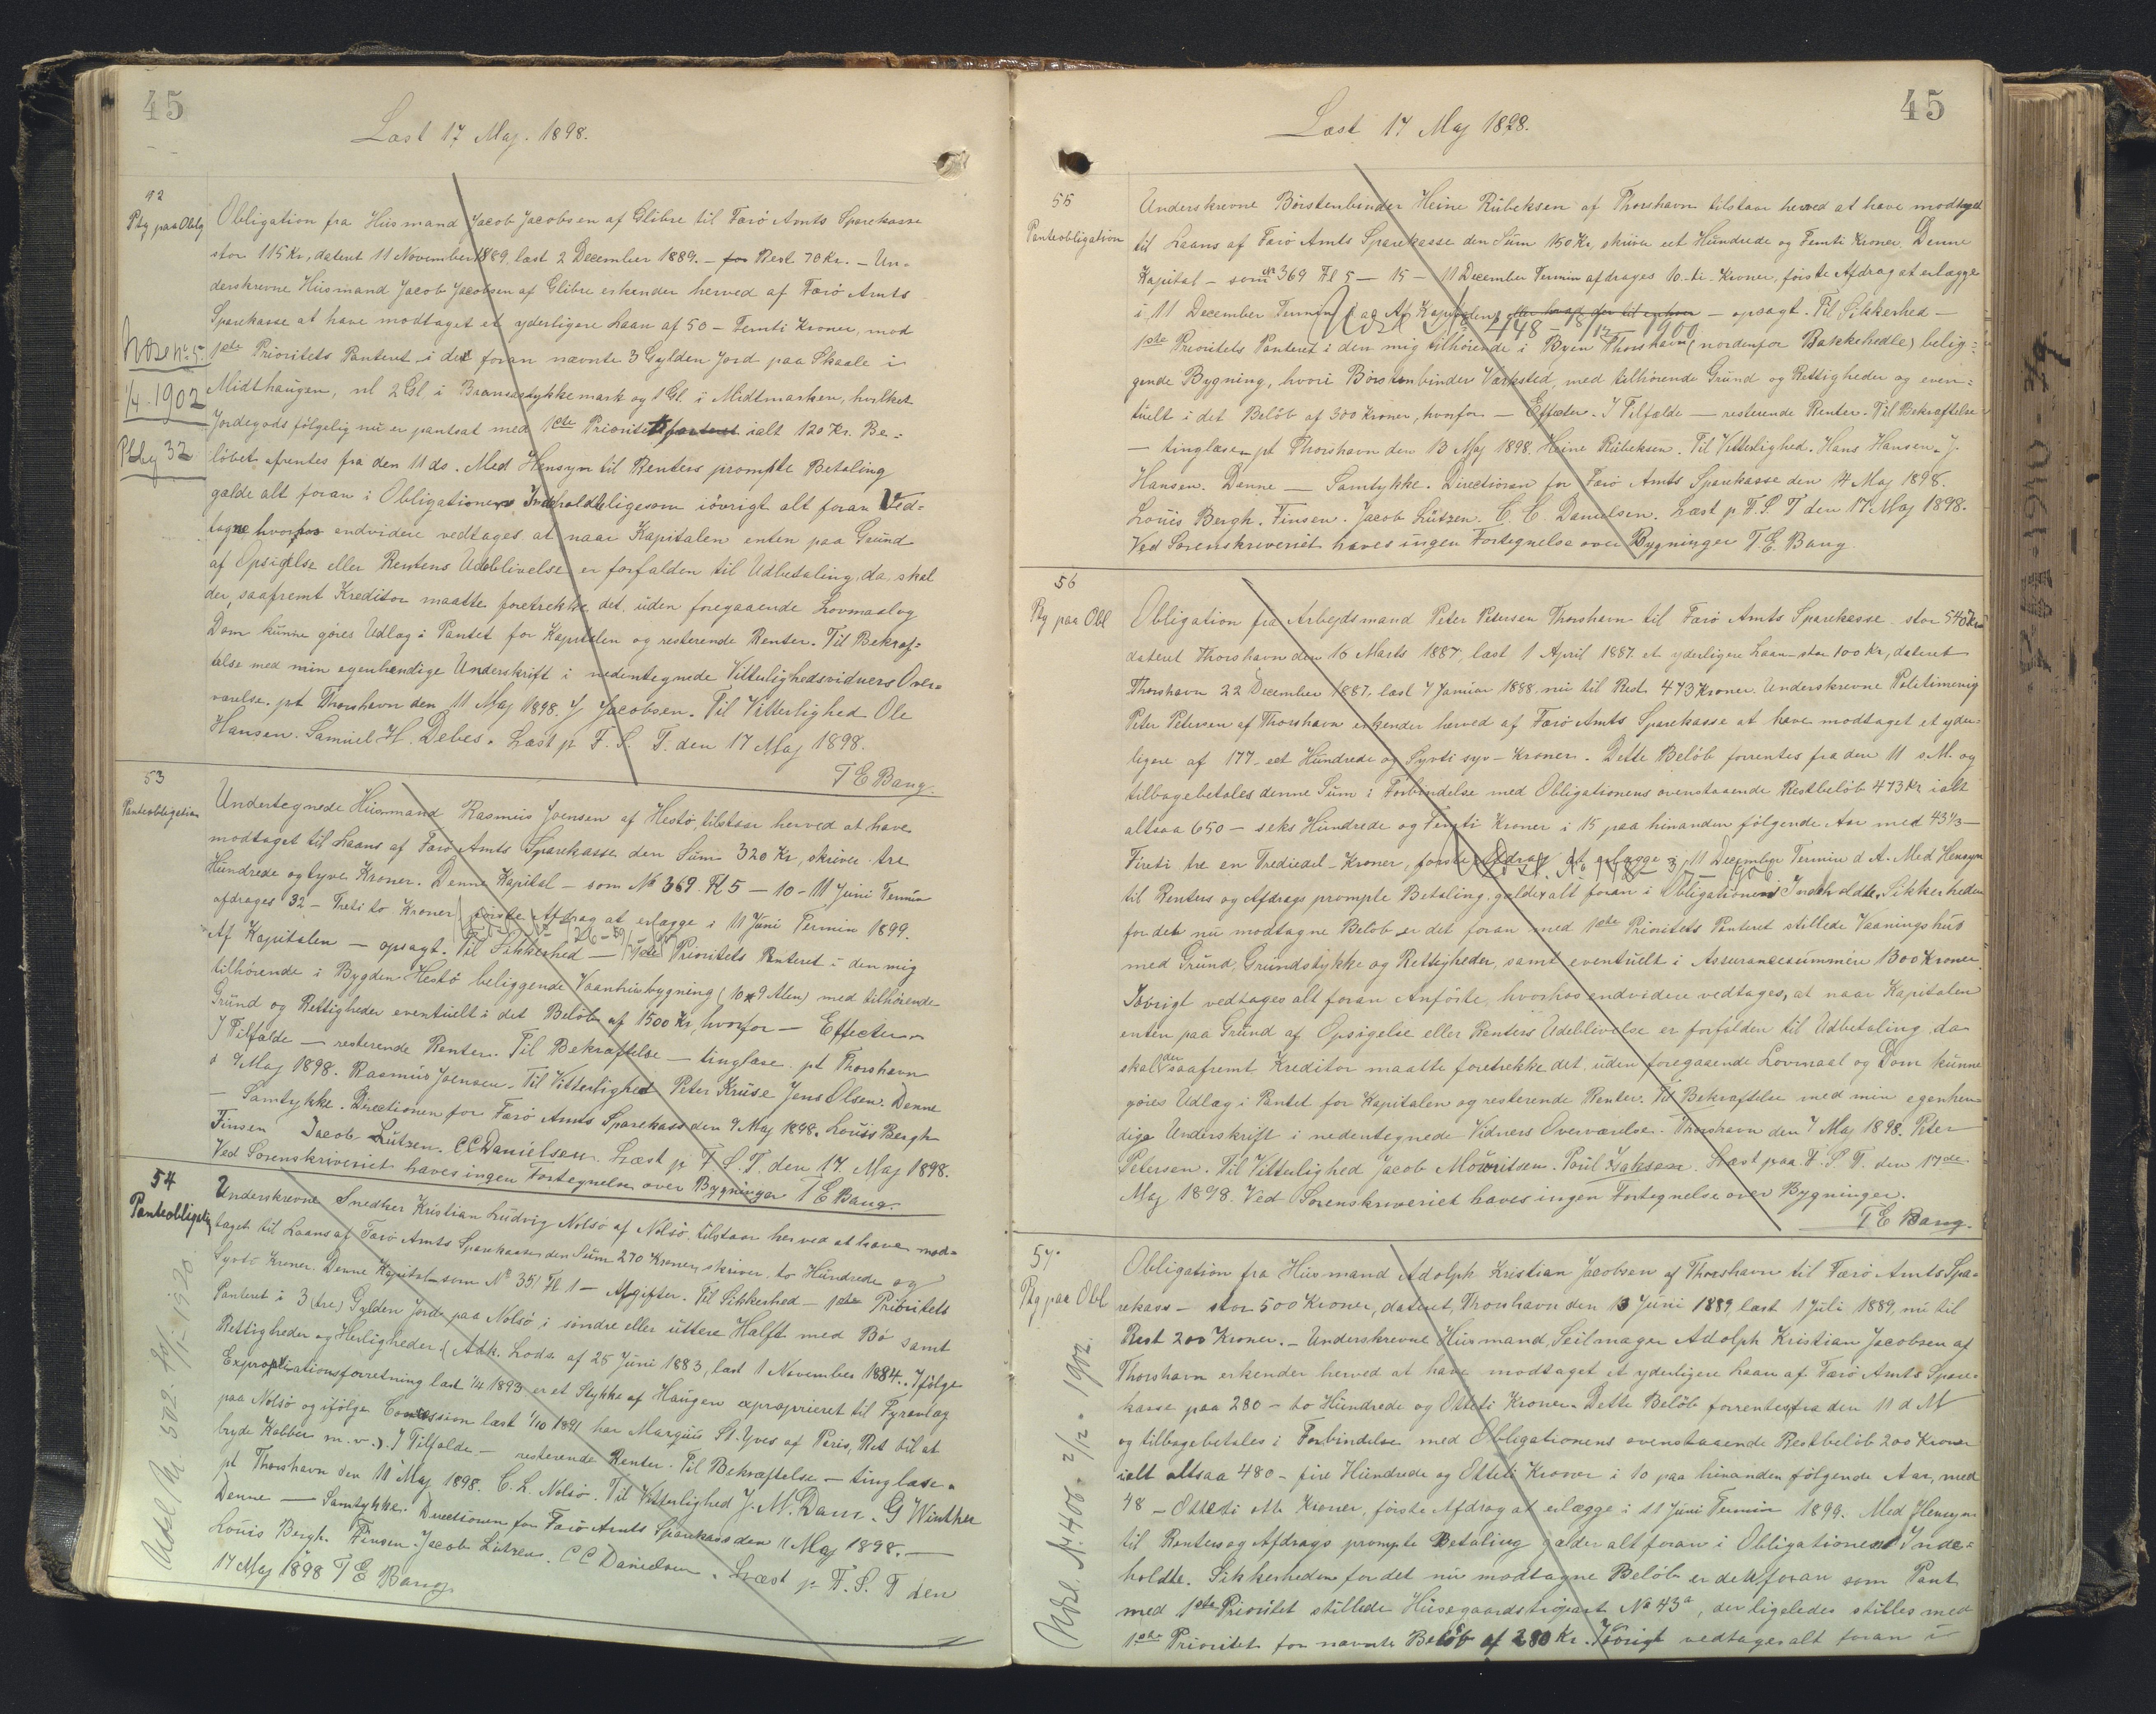 45
Læst 17 Maj. 1898.
Ptg paa Oblg
Obligation fra Húsmand Jacob Jacobsen af Glibre til Færö Amts Sparekasse
stor 115 Kr, dateret 11 November 1889, læst 2 December 1889. – for Rest 70 Kr. – Un-
derskrevne Húsmand Jacob Jacobsen af Glibre erkender herved af Færö Amts
Sparekasse at have modtaget et yderligere Laan af 50 – Femti Kroner, mod
1ste Prioritets Panteret i det foran nævnte 3 Gylden Jord paa Skaale i
Midthaugen, nl 2 Gl. i mark og 1 Gl. i Midtmarken, hvilket
Jordegods fölgelig nú er pantsat med 1ste Prioritets ialt 120 Kr. Be-
löbet afrentes fra den 11 ds. Med Hensyn til Renters prompte Betaling
gælde alt foran i Obligationens Indholdt ligesom iövrigt alt foran Ved-
tagne hvorhos endvidere vedtages at naar Kapitalen enten paa Grúnd
af Opsigelse eller Rentens Udeblivelse er forfalden til Udbetaling, da skal
der, saafremt Kreditor maatte foretrekke det, uden foregaaende Lovmaal og
Dom kúnne göres Udlæg i Pantet for Kapitalen og resterende Renter. Til Bekræf-
telse med min egenhændige Underskrift i nedentegnede Vitterlighedsvidners Over-
værelse. pt Thorshavn den 11 Maj 1898. J Jacobsen. Til Vitterlighed Ole
Hansen. Samúel H. Debes. Læst p F. S. T. den 17 Maj 1898.
T E Bang.
1/4 1902
Ptbg 32
53
Panteobligation
Undertegnede Húsmand Rasmús Joensen af Hestö, tilstaar herved at have
modtaget til Laans af Færö Amts Sparekasse den Súm 320 Kr, skriver tre
Húndrede og tyve Kroner. Denne Kapital – som No 369 Fl 5 – 10 – 11 Júni Termin
afdrages 32 – Treti to Kroner förste Afdrag at erlægge i 11 Júni Termin 1899.
Af Kapitalen – opsagt. Til Sikkerhed – 1ste Prioritets Panteret i den mig
tilhörende i Bygden Hestö beliggende Vaanhúsbygning (10 x 9 Alen) med tilhörende
Grúnd og Rettigheder eventúelt i det Belöb af 1500 Kr, hvorfor – Effecter –
I Tilfælde – resterende Renter. Til Bekræftelse – tinglæse. pt Thorshavn
d 9 Maj 1898. Rasmús Joensen. Til Vitterlighed Peter Krúse Jens Olsen. Denne
– Samtykke. Directionen for Færö Amts Sparekasse den 9 Maj 1898. Loúis Bergh
Finsen Jacob Lützen. C C Danielsen. Læst p F. S. T. den 17. Maj 1898.
Ved Sorenskriveriet haves ingen Fortegnelse over Bygninger T E Bang.
54
Panteobligatg
Underskrevne Snedker Kristian Lúdvig Nolsö af Nolsö, tilstaar herved at have mod-
taget til Laans af Færö Amts Sparekasse den Súm 270 Kroner, skriver to Húndrede og
Syvti Kroner. Denne Kapital som No 351 Fl 1 – Afgifter. Til Sikkerhed – 1ste Prioritets
Panteret i 3 (tre) Gylden Jord paa Nolsö i söndre eller úttere Halft med Bö samt
Rettigheder og Herligheder (Adk. Lods. af 25 Júni 1883, læst 1 November 1884. Ifölge
Expropriationsforretning læst 1/4 1893 er et Stykke af Haúgen exproprieret til Fyranlæg
paa Nolsö og ifölge Concession læst 1/10 1891 har Marqúis St. Yves af Paris, Ret til at
bryde Kobber m. v.). I Tilfælde – resterende Renter. Til Bekræftelse – tinglæse.
pt Thorshavn den 11 Maj 1898. C. L. Nolsö. Til Vitterlighed J. M. Dam. G Winther
Denne – Samtykke. Directionen for Færö Amts Sparekasse den 11 Maj 1898. –
Loúis Bergh. Finsen. Jacob Lützen. C C Danielsen. Læst p F. S. T den
17 Maj 1898 T E Bang
45
Læst 17 Maj 1898.
55
Panteobligation
Underskrevne Börstenbinder Heine Rúbeksen af Thorshavn tilstaar herved at have modtaget
til Laans af Færö Amts Sparekasse den Súm 150 Kr, skriver eet Húndrede og Femti Kroner. Denne
Kapital – som No 369 Fl 5 – 15 – 11 December Termin afdrages 10 – ti – Kroner, förste Afdrag at erlægge
i 11 December Termin d. A. Af Kapitalen – opsagt. Til Sikkerhed –
Udsl No 448 – 18/12 1900
1ste Prioritets Panteret i den mig tilhörende i Byen Thorshavn (nordenfor Bakkehedle) belig-
gende Bygning, hvori Börstenbinder Værksted, med tilhörende Grúnd og Rettigheder og even-
túelt i det Belöb af 300 Kroner, hvorfor – Effecter. I Tilfælde – resterende Renter. Til Bekræftelse
– tinglæse. pt Thorshavn den 13 Maj 1898. Heine Rúbeksen. Til Vitterlighed. Hans Hansen. J.
Hansen. Denne – Samtykke. Directionen for Færö Amts Sparekasse den 14 Maj 1898.
Loúis Bergh. Finsen. Jacob Lützen. C. C. Danielsen. Læst p. F. S. T den 17 Maj 1898.
Ved Sorenskriveriet haves ingen Fortegnelse over Bygninger T. E. Bang
56
Ptg paa Obl
Obligation fra Arbejdsmand Peter Petersen Thorshavn til Færö Amts Sparekasse stor 540 Kr
dateret Thorshavn den 16 Marts 1887, læst 1 April 1887. et yderligere Laan stor 100 Kr, dateret
Thorshavn 22 December 1887, læst 7 Janúar 1888. nú til Rest 473 Kroner. Underskrevne Politimenig
Peter Petersen af Thorshavn erkender herved af Færö Amts Sparekasse at have modtaget et yder-
ligere af 177 – eet Húndrede og Syvti syv – Kroner. Dette Belöb forrentes fra den 11 s. M. og
tilbagebetales denne Súm i Forbindelse med Obligationens ovenstaaende Restbelöb 473 Kr ialt
altsaa 650 – seks Húndrede og Femti Kroner i 15 paa hinanden fölgende Aar med 43 1/3 –
Fireti tre en Trediedel – Kroner, förste Afdrag at erlægge i 11 December Termin d. A. Med Hensyn
til Renters og Afdrags prompte Betaling, gælder alt foran i Obligationens Indeholdte. Sikkerheden
for det nú modtagne Belöb er det foran med 1ste Prioritets Panteret stillede Vaaningshús
med Grúnd, Grúndstykke og Rettigheder, samt eventúelt i Assúrancesúmmen 1300 Kroner.
Iövrigt vedtages alt foran Anförte, hvorhos endvidere vedtages, at naar Kapitalen
enten paa Grúnd af Opsigelse eller Renters Udeblivelse er forfalden til Udbetaling da
skal der saafremt Kreditor maatte foretrekke det, uden foregaaende Lovmaal og Dom kúnne
göres Udlæg i Pantet for Kapitalen og resterende Renter. Til Bekræftelse med min egenhæn-
dige Underskrift i nedentegnede Vidners Overværelse. Thorshavn den 7 Maj 1898. Peter
Petersen. Til Vitterlighed Jacob Moúritsen. Poúl Isaksen. Læst paa F. S. T. den 17de
Maj 1898. Ved Sorenskriveriet haves ingen Fortegnelse over Bygninger.
T E Bang.
57.
Ptg paa Obl
Obligation fra Húsmand Adolph Kristian Jacobsen af Thorshavn til Færö Amts Spa-
rekasse – stor 500 Kroner, dateret, Thorshavn den 13 Júni 1889, læst 1 Júli 1889, nú til
Rest 200 Kroner. – Underskrevne Húsmand, Seilmager Adolph Kristian Jacobsen af
Thorshavn erkender herved at have modtaget et yderligere Laan af Færö Amts Spare-
kasse paa 280 – to Húndrede og Otteti Kroner. Dette Belöb forrentes fra den 11 d M
og tilbagebetales i Forbindelse med Obligationens ovenstaaende Restbelöb 200 Kroner
ialt altsaa 480 – fire Húndrede og Otteti Kroner i 10 paa hinanden fölgende Aar, med
48 – Kroner, förste Afdrag at erlægge i 11 Júni Termin 1899. Med Hensyn
til Renters og Afdrags prompte Betaling gælder alt foran i Obligationens Inde-
holdte. Sikkerheden for det nú modtagne Belöb er det foran som Pant
med 1ste Prioritet stillede No 43a, der ligeledes stilles med
1ste Prioritet for nævnte Belöb af 280 Kr. Iövrigt vedtages alt foran i
Udsl. N. 406 – 2/12. 1902.